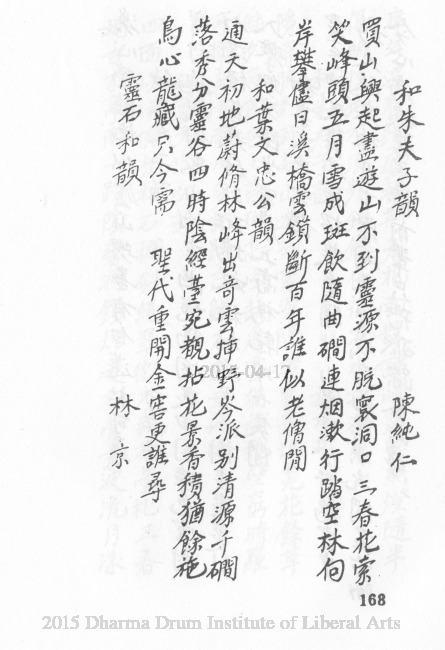 和朱夫子韻　陳純仁
買山興起盡遊山不到靈源不脫寰洞口三春花索
笑峰頭五月雪成斑飲隨曲磵連烟漱行踏空林向
岸攀儘日溪橋雲鎖斷百年誰似老僧閒
和葉文忠公韻
通天初地蔚脩林峰出奇雲抻野岑派别清源千磵
落秀分靈谷四時陰經臺宛觀拈花景香積猶餘施
鳥心龍藏只今需　聖代重開金窖更誰尋
靈石和韻　林京
168
2015-04-17
2015 Dharma Drum Institute of Liberal Arts